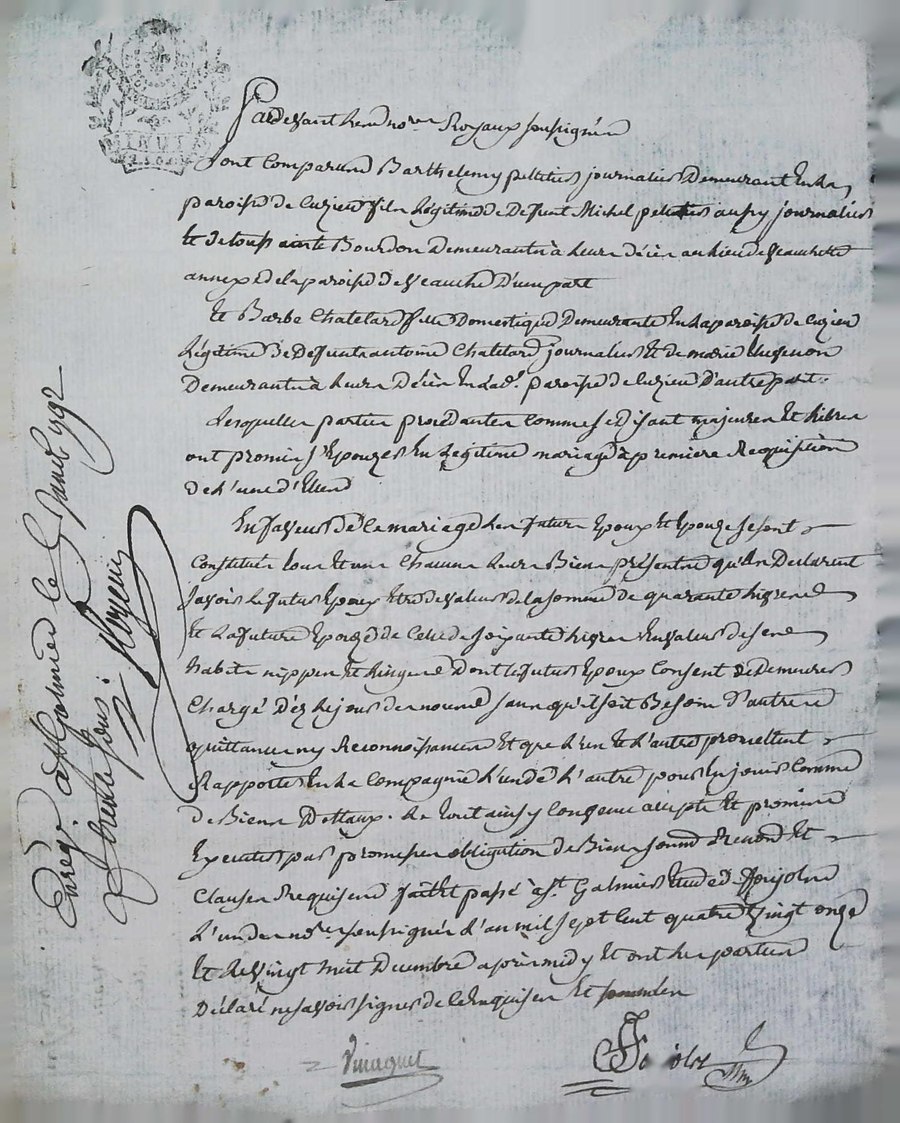 Pardevant les no.res Royaux soussignés
sont comparus Barthelemy pelletier journalier Demeurant En la
paroisse de Cuzieu fils Légitime de Deffunt Michel pelletier aussy journalier
Et de Bourdon Demeurants à leurs décès au lieu de Veauchette
annexe de la paroisse de Veauche D'une part
Et Barbe Chatelard fille Domestique Demeurante En la paroisse de Cuzieu
Légitime de Deffunts antoine Chatelard journalier Et de marie
Demeurants à leurs Décès En lad.e paroisse de Cuzieu D'autre part.
Lesquelles parties procédantes comme se disant majeures Et libres
ont promis s'Epouzer En Légitime mariage à première Requisition
de L'une d'Elles
En faveur de ce mariage les future Epoux Et Epouze se sont
Constitués tous Et uns Chacuns leurs Biens présents qu'ils Déclarent
savoir Le futur Epoux Etre de valeur de la somme de quarante livres
Et La future Epouze de Celle de soixante livres En valeur de ses
habits nippes Et linges Dont le futur Epoux Consent de Demeurer
Chargé Dèz le jour des noces sans qu'il soit Besoin d'autres
quittances ny Reconnoissances Et que L'un Et L'autre promettent
Rapporter En la Compagnie L'un de L'autre pour En jouir Comme
de Biens Dottaux. Le tout ainsy Convenu accepté Et promis
Executer par promesses obligation de Biens soums. Renond. Et
Clauses Requises fait Et passé à S.t Galmier Etude de
L'un des no.res soussignés L'an mil sept Cent quatre Vingt onze
Et Le Vingt huit Décembre après midy Et ont les parties
Déclaré ne savoir signer de ce Enquises Et sommées
Vinagut
Enreg.é à S.t Galmier le 1792